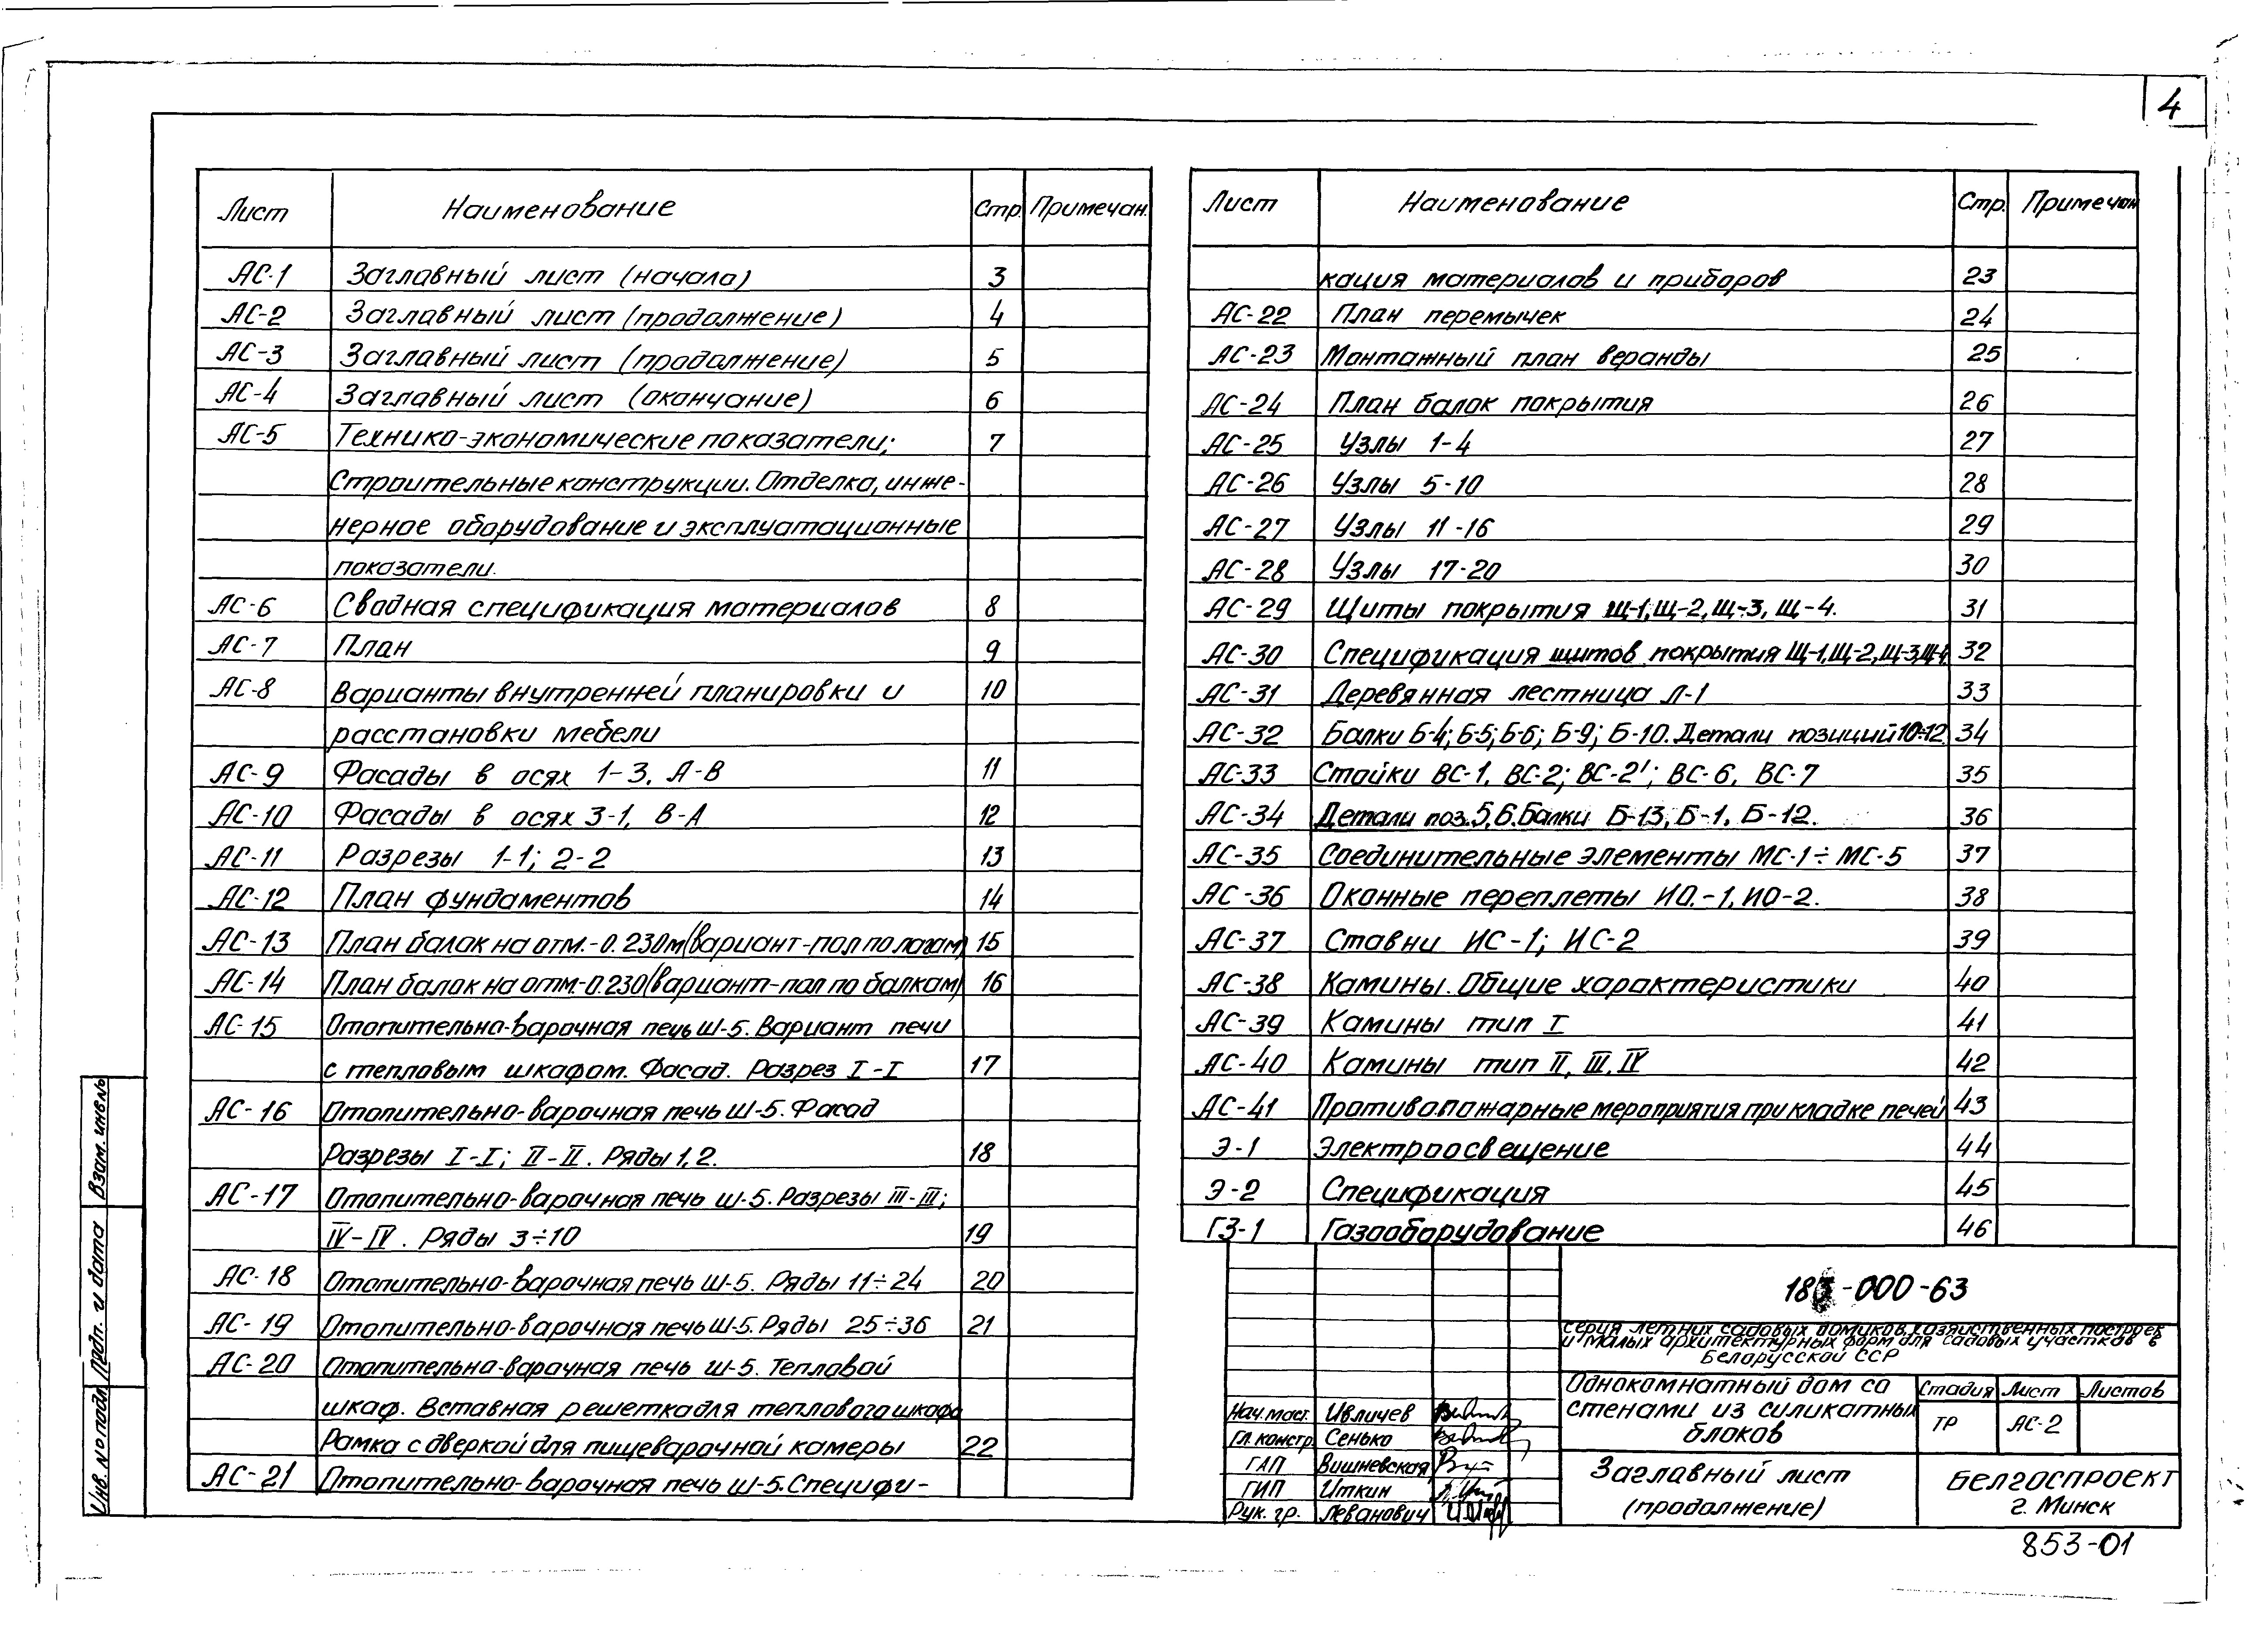 4
Лист Наименование Стр. Примечан.
АС-1 Заглавный лист (начало) 3
АС-2 Заглавный лист (продолжение) 4
АС-3 Заглавный лист (продолжение) 5
АС-4 Заглавный лист (окончание) 6
АС-5 Технико-экономические показатели; 7
Строительные конструкции. Отделка, инже-
нерное оборудование и эксплуатационные
показатели.
АС-6 Сводная спецификация материалов 8
АС-7 План 9
АС-8 Варианты внутренней планировки и 10
расстановки мебели
АС-9 Фасады в осях 1-3, А-В 11
АС-10 Фасады в осях 3-1, В-А 12
АС-11 Разрезы 1-1; 2-2 13
АС-12 План фундаментов 14
АС-13 План балок на отм.-0.230м (вариант-пол по лагам) 15
АС-14 План балок на отм.-0.230 (вариант-пол по балкам) 16
АС-15 Отопительно-варочная печь Ш-5. Вариант печи
с тепловым шкафом. Фасад. Разрез I-I 17
АС-16 Отопительно-варочная печь Ш-5. Фасад
Разрезы I-I; II-II. Ряды 1,2. 18
АС-17 Отопительно-варочная печь Ш-5. Разрезы III-III;
IV-IV. Ряды 3÷10 19
АС-18 Отопительно-варочная печь Ш-5. Ряды 11÷24 20
АС-19 Отопительно-варочная печь Ш-5. Ряды 25÷36 21
АС-20 Отопительно-варочная печь Ш-5. Тепловой
шкаф. Вставная решетка для теплового шкафа
Рамка с дверкой для пищеварочной камеры 22
АС-21 Отопительно-варочная печь Ш-5. Специфи-
Лист Наименование Стр. Примечан
кация материалов и приборов 23
АС-22 План перемычек 24
АС-23 Монтажный план веранды 25
АС-24 План балок покрытия 26
АС-25 Узлы 1-4 27
АС-26 Узлы 5-10 28
АС-27 Узлы 11-16 29
АС-28 Узлы 17-20 30
АС-29 Щиты покрытия Щ-1, Щ-2, Щ-3, Щ-4. 31
АС-30 Спецификация щитов покрытия Щ-1, Щ-2, Щ-3, Щ-4 32
АС-31 Деревянная лестница Л-1 33
АС-32 Балки Б-4; Б-5; Б-6; Б-9; Б-10. Детали позиций 10÷12 34
АС-33 Стойки ВС-1, ВС-2; ВС-2'; ВС-6, ВС-7 35
АС-34 Детали поз. 5, 6. Балки Б-13, Б-1, Б-12. 36
АС-35 Соединительные элементы МС-1÷МС-5 37
АС-36 Оконные переплеты ИО.-1, ИО-2. 38
АС-37 Ставни ИС-1; ИС-2 39
АС-38 Камины. Общие характеристики 40
АС-39 Камины тип I 41
АС-40 Камины тип II, III, IV 42
АС-41 Противопожарные мероприятия при кладке печей 43
Э-1 Электроосвещение 44
Э-2 Спецификация 45
ГЗ-1 Газооборудование 46
-000-63
Серия летних садовых домиков, хозяйственных построек
и малых архитектурных форм для садовых участков в
Белорусской ССР
Однокомнатный дом со
стенами из силикатных
блоков
Стадия Лист Листов
ТР АС-2
Нач. маст. Ивличев
Гл. констр. Сенько
ГАП Вишневская
ГИП Иткин
Рук. гр. Леванович
Заглавный лист
(продолжение)
БЕЛГОСПРОЕКТ
г. Минск
853-01
Взам. инв.№
Подп. и дата
Инв. № подл.